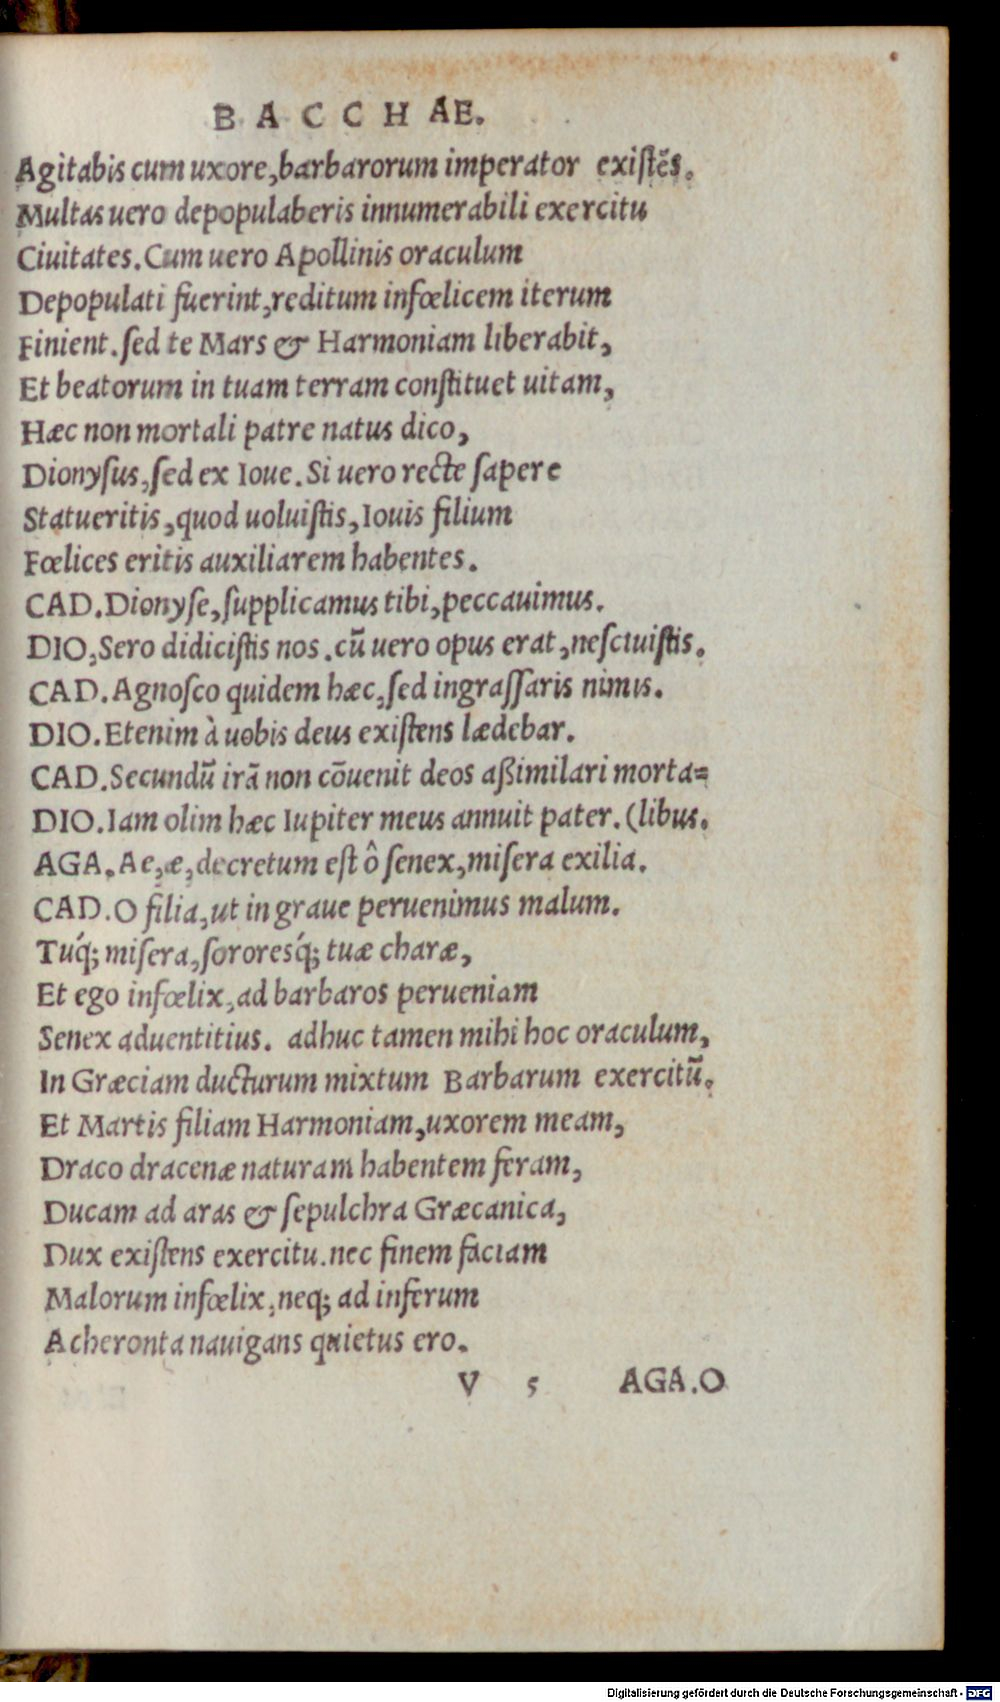 BACCHAE.
Agitabis cum uxore, barbarorum imperator existēs.
Multas uero depopulaberis innumerabili exercitu
Ciuitates. Cum uero Apollinis oraculum
Depopulati fuerint, reditum infœlicem iterum
Finient. ſed te Mars & Harmoniam liberabit,
Et beatorum in tuam terram conſtituet uitam,
Hæc non mortali patre natus dico,
Dionyſus, ſed ex Ioue. Si uero recte ſapere
Statueritis, quod uoluiſtis, Iouis filium
Fœlices eritis auxiliarem habentes.
CAD. Dionyſe, ſupplicamus tibi, peccauimus.
DIO, Sero didiciſtis nos. cū uero opus erat, neſciuiſtis.
CAD. Agnoſco quidem hæc, ſed ingraſſaris nimis.
DIO. Etenim à uobis deus exiſtens lædebar.
CAD. Secundū irā non cōuenit deos aßimilari morta=
DIO. Iam olim hæc Iupiter meus annuit pater. (libus.
AGA. Ae, æ, decretum eſt ô ſenex, miſera exilia.
CAD. O filia, ut in graue peruenimus malum.
Tuq́; miſera, ſororesq́; tuæ charæ,
Et ego infœlix, ad barbaros perueniam
Senex aduentitius. adhuc tamen mihi hoc oraculum,
In Græciam ducturum mixtum Barbarum exercitū.
Et Martis filiam Harmoniam, uxorem meam,
Draco dracenæ naturam habentem feram,
Ducam ad aras & ſepulchra Græcanica,
Dux exiſtens exercitu. nec finem faciam
Malorum infœlix, neq; ad inferum
Acheronta nauigans quietus ero.
V 5 AGA. O
Digitalisierung gefördert durch die Deutsche Forschungsgemeinschaft - DFG